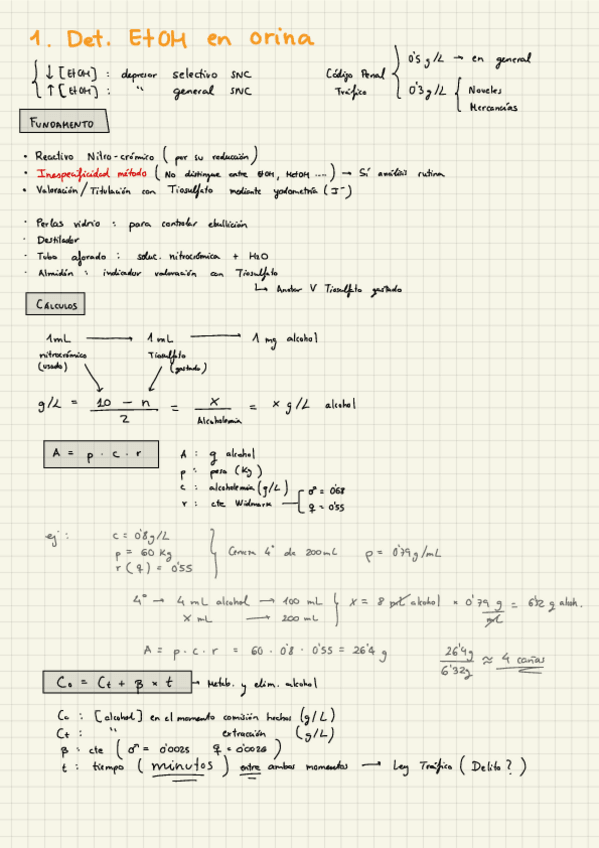 1. Det. EtOH en orina
↓ [EtOH] : depresor selectivo SNC
↑ [EtOH] : " general SNC
Código Penal
Tráfico
0'5 g/L → en general
0'3 g/L
Noveles
Mercancías
FUNDAMENTO
· Reactivo Nitro-crómico ( por su reducción )
· Inespecificidad método ( No distingue entre EtOH, MetOH .... ) → Sí análisis rutina
· Valoración/Titulación con Tiosulfato mediante yodometría ( I⁻ )
· Perlas vidrio : para controlar ebullición
· Destilador
· Tubo aforado : soluc. nitrocrómica + H2O
· Almidón : indicador valoración con Tiosulfato
↳ Anotar V Tiosulfato gastado
CÁLCULOS
1mL → 1 mL → 1 mg alcohol
nitrocrómico (usado)
Tiosulfato (gastado)
g/L = 10 - n / 2 = x / Alcoholemia = x g/L alcohol
A = p · c · r
A : g alcohol
p : peso (Kg)
c : alcoholemia (g/L)
r : cte Widmark
♂ = 0'68
♀ = 0'55
ej : c = 0'8 g/L
p = 60 Kg
r (♀) = 0'55
Cerveza 4° de 200mL ρ = 0'79 g/mL
4° → 4 mL alcohol → 100 mL
X mL → 200 mL
X = 8 mL alcohol × 0'79 g / mL = 6'32 g alcoh.
A = p · c · r = 60 · 0'8 · 0'55 = 26'4 g
26'4g / 6'32g ≈ 4 cañas
C₀ = Ct + β × t → Metab. y elim. alcohol
C₀ : [alcohol] en el momento comisión hechos (g/L)
Ct : " extracción (g/L)
β : cte ( ♂ = 0'0025 ♀ = 0'0026 )
t : tiempo ( minutos ) entre ambos momentos → Ley Tráfico ( Delito ? )